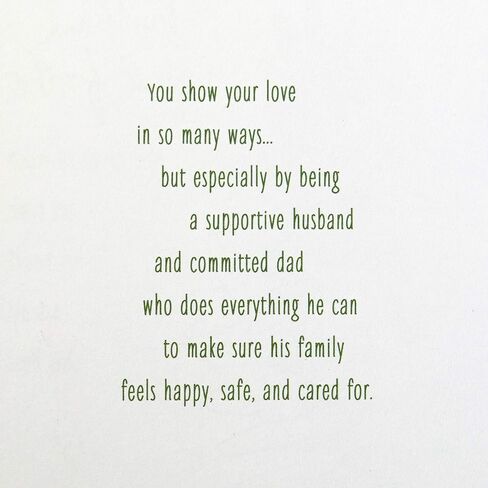 You show your love
in so many ways...
but especially by being
a supportive husband
and committed dad
who does everything he can
to make sure his family
feels happy, safe, and cared for.